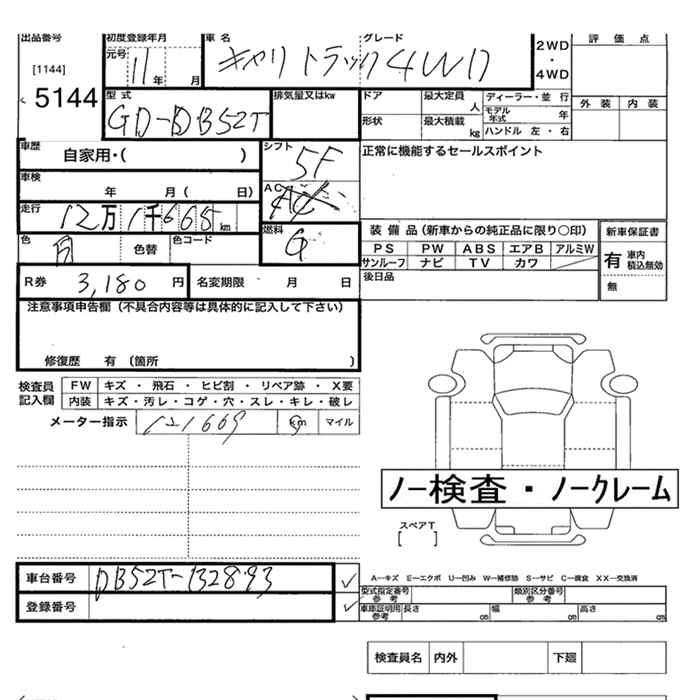 出品番号 初度登録年月 車名 グレード 評価点
[1144] 元号 11年 月 キャリ トラック 4WD 2WD・4WD
5144 外装 内装
型式 排気量又はkw ドア 最大定員 人 ディーラー・並行
GD-DB52T 形状 最大積載 kg モデル年式 年
ハンドル 左・右
車歴 自家用・( ) シフト 5F 正常に機能するセールスポイント
車検 年 月( 日) AC AC
走行 12万1千665km 燃料 G 装備品(新車からの純正品に限り○印) 新車保証書
色 白 色替 色コード PS PW ABS エアB アルミW 有 車内積込無効
サンルーフ ナビ TV カワ
R券 3,180円 名変期限 月 日 後日品 無
注意事項申告欄(不具合内容等は具体的に記入して下さい)
修復歴 有(箇所 )
検査員記入欄 FW キズ・飛石・ヒビ割・リペア跡・X要
内装 キズ・汚レ・コゲ・穴・スレ・キレ・破レ
メーター指示 121669 km マイル
ノー検査・ノークレーム
スペアT
[ ]
車台番号 DB52T-132893 ✓ A—キズ E—エクボ U—凹み W—補修跡 S—サビ C—腐食 XX—交換済
型式指定番号参考 類別区分番号参考
登録番号 ✓ 車庫証明用参考 長さ cm 幅 cm 高さ cm
検査員名 内外 下廻